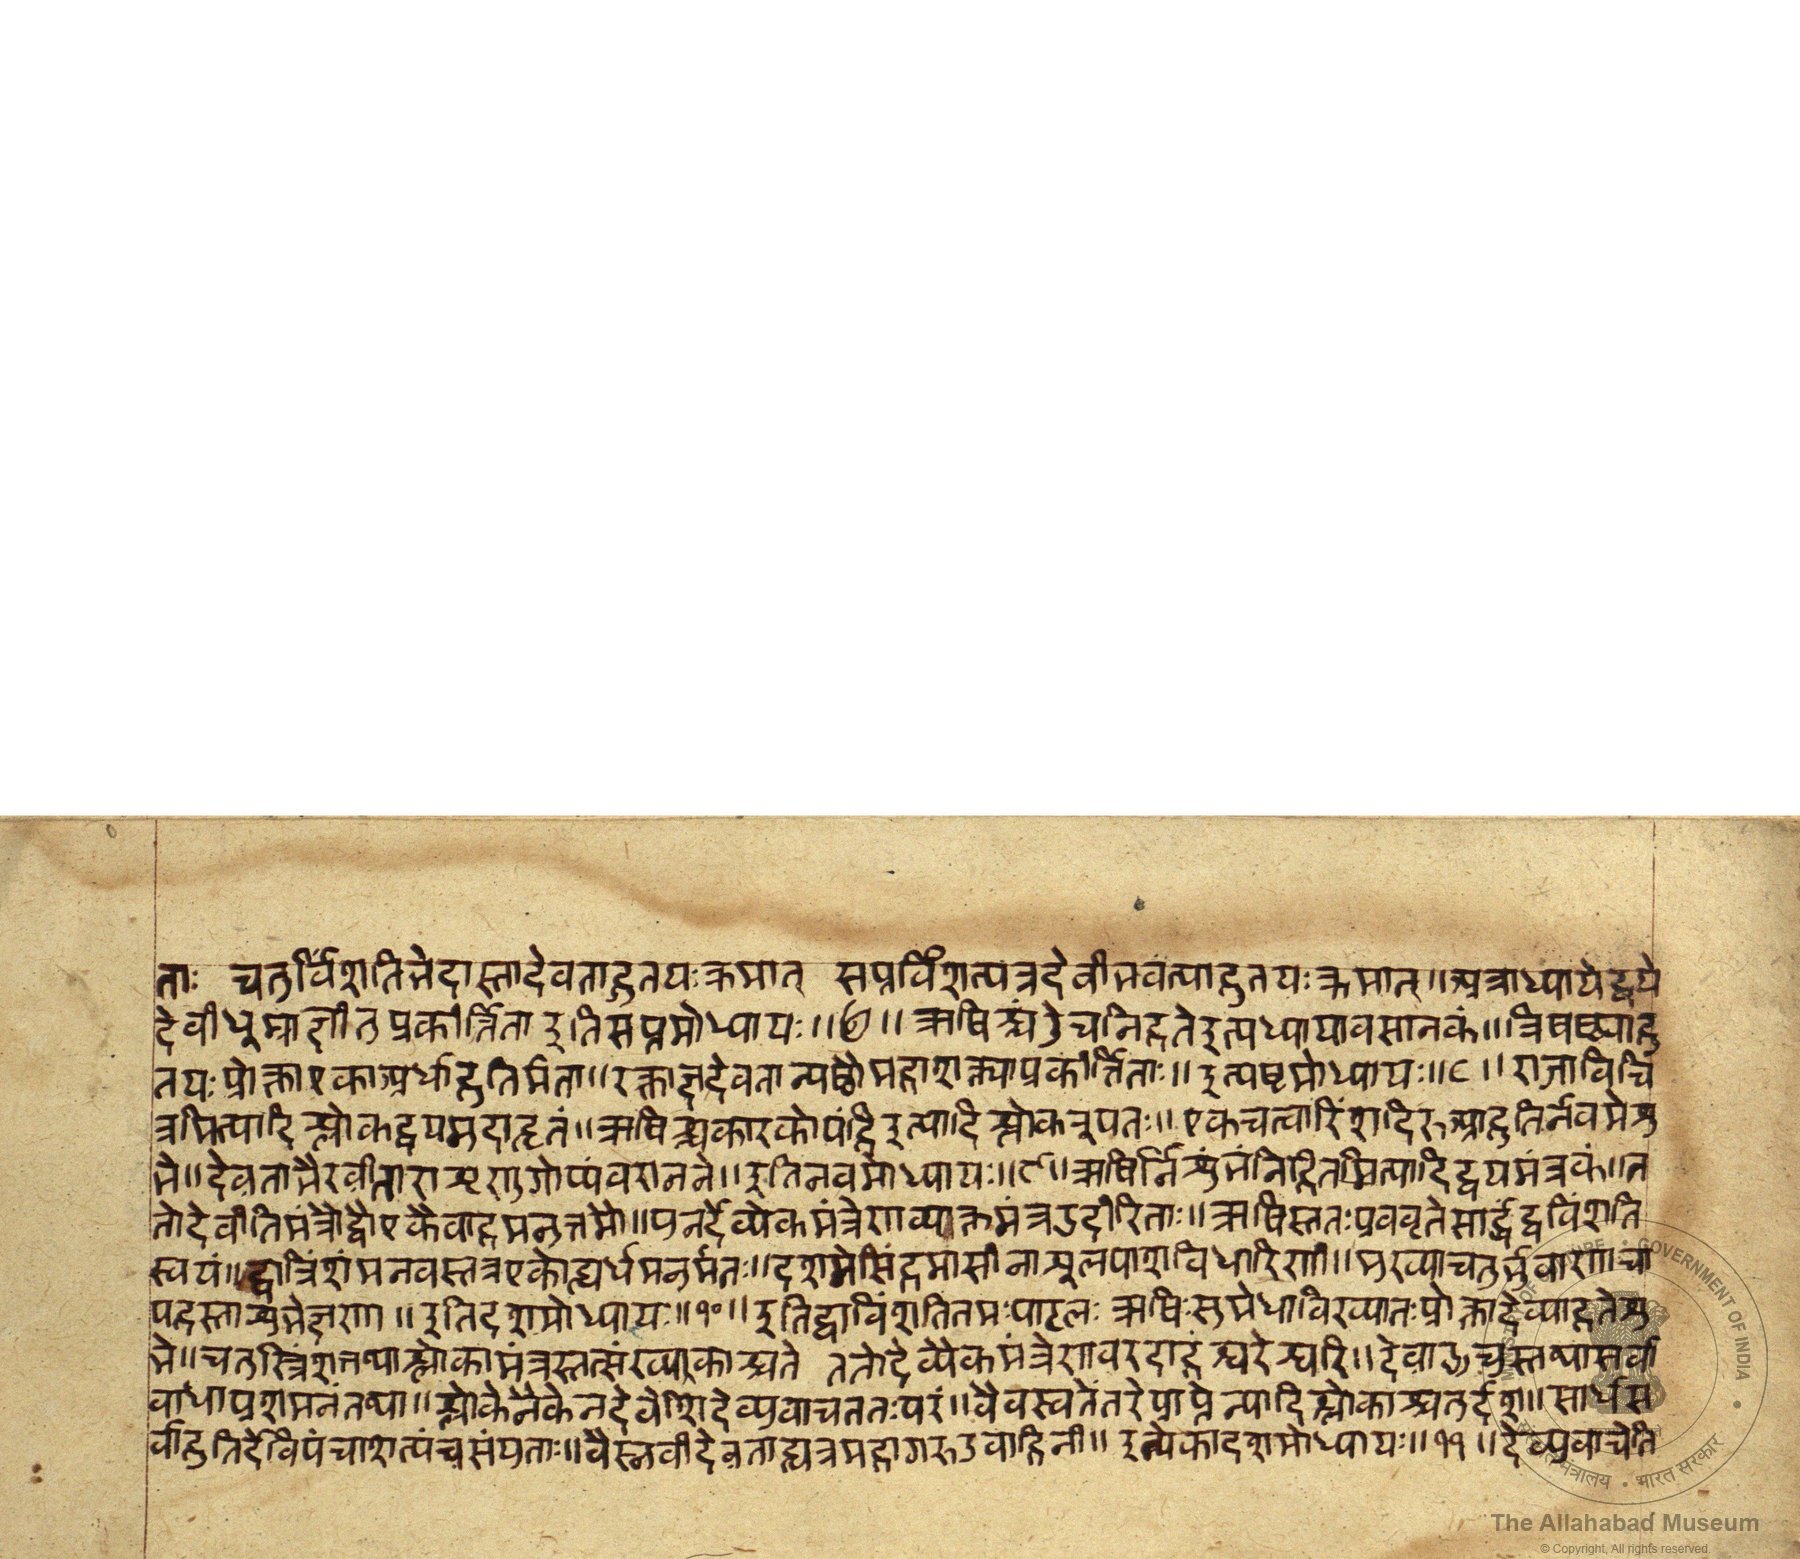 ताः चतुर्विंशतिभेदास्ता देवताहुतयः क्रमात् सप्तविंशत्पत्रदेवीभवत्याहुतयः क्रमात्॥अत्राध्यायेद्वये
देवीधुम्राक्षीत प्रकीर्त्तिता इतिसप्तमोध्यायः॥७॥ऋषिश्चंडेचनिहतेइत्यध्यायावसानकं॥त्रिषष्ठ्याहु
तयः प्रोक्ताएकाअर्धाहुतिर्मिता॥रक्ताक्षदेवतान्यष्ठौमहाशक्त्याप्रकीर्त्तिताः॥इत्यष्टमोध्यायः॥८॥राजाविचि
त्रमित्यादिश्लोकद्वयमुदाहृतं॥ऋषिश्चकारकोपंहिइत्यादिश्लोकनुपतः॥एकचत्वारिंशदिरुआहुतिर्नवमेशु
भे॥देवताभैरवीतारा गोप्यंवरानने॥इतिनवमोध्यायः॥९॥ऋषिर्निशुंभंनिहितमित्यादिद्वयमंत्रकं॥त
तोदेवीतिमंत्रोद्वौएकैवाहमनुत्तमो॥पुनर्देव्येकमंत्रेणव्याक्तमंत्रउदीरिताः॥ऋषिस्ततःप्रववृतेसार्द्धद्वविंशति
स्वयं॥द्वात्रिंशंमनवस्तत्रएकोह्यर्धमनुर्मतः॥दशमेसिंहमासीनाशूलपाशविधारिणी॥मुख्याचतुर्भुवाणाचा
पहस्ताशुभेक्षणा॥इतिदशमोध्यायः॥१०॥इतिद्वाविंशतितमःपाटलः ऋषिःसुमेधाविख्यातःप्रोक्तादेव्याहतेशु
भे॥चतुस्त्रिंशत्तथाश्लोकामंत्रस्तत्संख्याकाश्चते ततोदेव्यैकमंत्रेणवरदाहंश्वरेश्वरि॥देवाऊचुस्तथासर्वा
वाधाप्रशमनंतथा॥श्लोकेनैकेनदेवेशिदेव्युवाचततःपरं॥वैवस्वतेंतरेप्राप्तेन्यादिश्लोकाश्चतुर्दश॥सार्धस
र्वाहुतिर्देविपंचाशत्पंचसंयुताः॥वैस्नवीदेवताह्यत्रमहागरुडवाहिनी॥इत्येकादशमोध्यायः॥११॥देव्युवाचेति
The Allahabad Museum
© Copyright, All rights reserved.